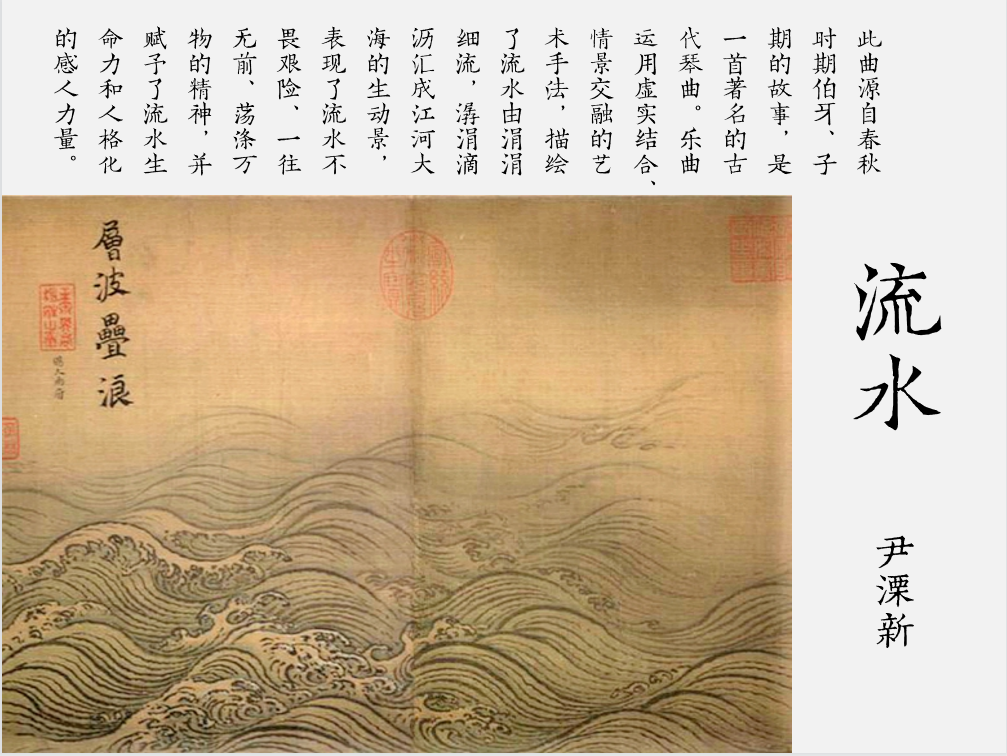 此曲源自春秋
时期伯牙、子
期的故事，是
一首著名的古
代琴曲。乐曲
运用虚实结合、
情景交融的艺
术手法，描绘
了流水由涓涓
细流，潺涓滴
沥汇成江河大
海的生动景，
表现了流水不
畏艰险、一往
无前、荡涤万
物的精神，并
赋予了流水生
命力和人格化
的感人力量。
流水
尹溧新
層波疊浪